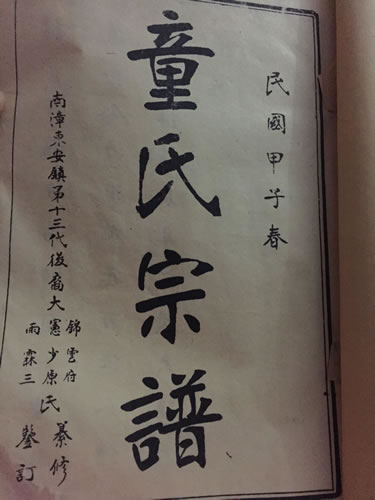 民國甲子春
童氏宗譜
南漳東安鎮第十三代後裔大
錦雲府
憲少原氏
雨霖三
纂修
鑒訂